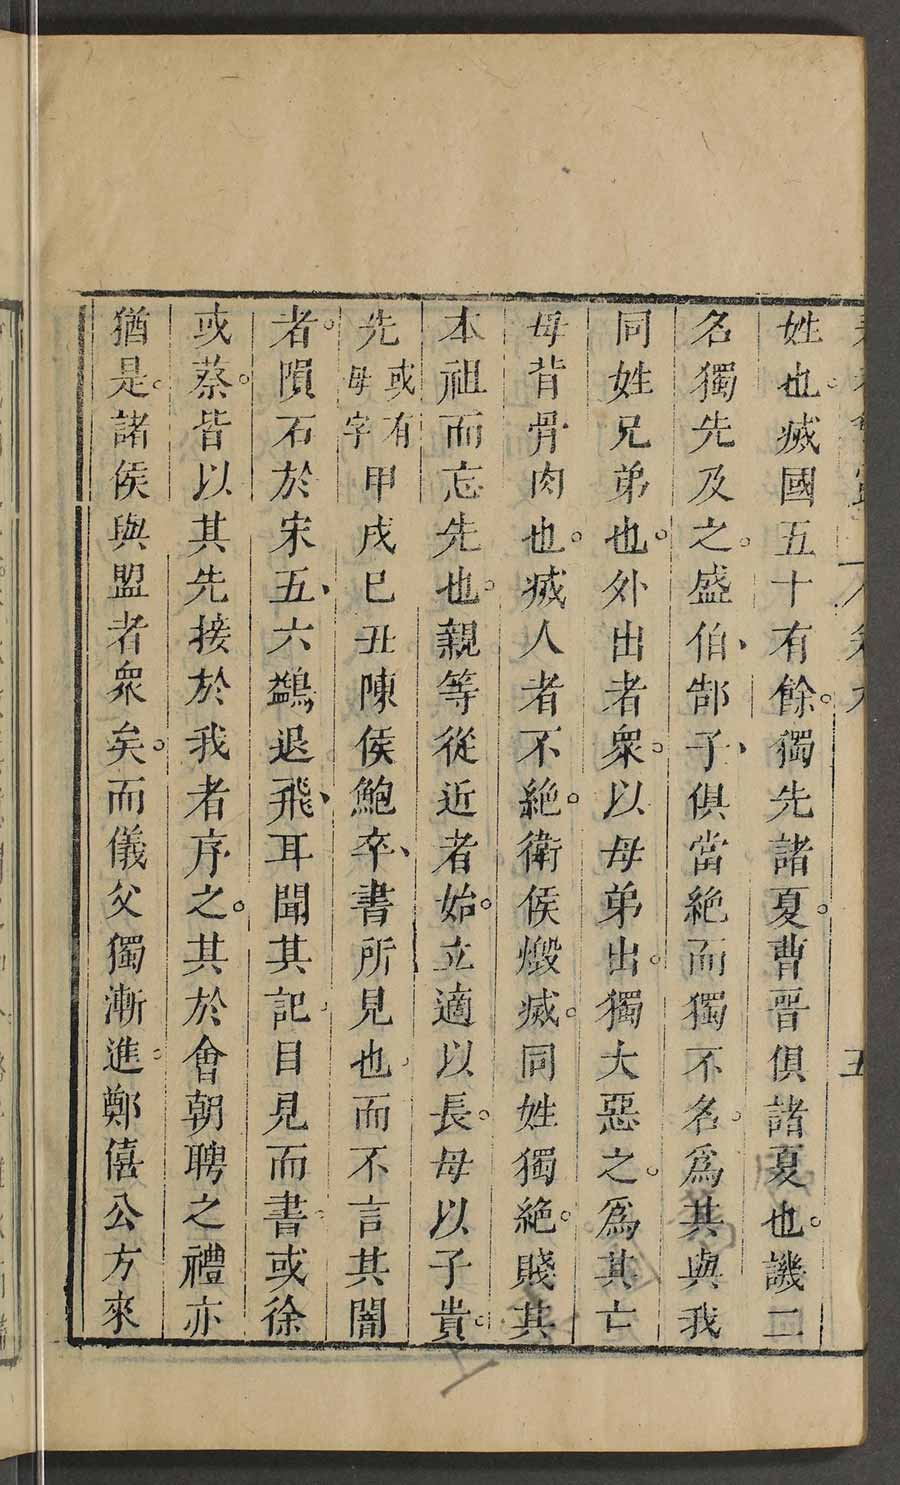 姓也。烕國五十有餘。獨先諸夏。曹晉俱諸夏也。譏二
名獨先及之。盛伯、郜子、俱當絶而獨不名。爲其與我
同姓兄弟也。外出者衆。以母弟出。獨大惡之。爲其亡
母背骨肉也。烕人者不絶。衛侯燬烕。同姓獨絶。賤其
本祖而忘先也。親等從近者始。立適以長。母以子貴。
先或有母字甲戌巳丑陳侯鮑卒、書所見也。而不言其闇
者。隕石於宋五、六鷁退飛、耳聞其記。目見而書。或徐
或蔡。皆以其先接於我者序之。其於會朝聘之禮亦
猶是。諸侯與盟者衆矣。而儀父獨漸進。鄭僖公方來
五